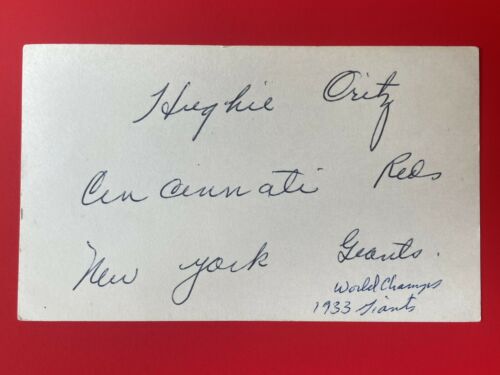 Hughie Critz
Cincinnati Reds
New york Giants.
World Champs
1933 Giants